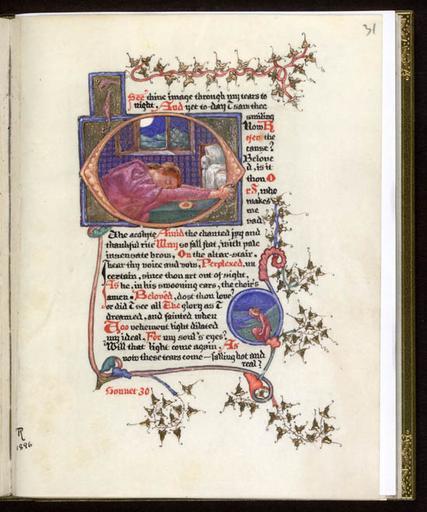 31
I See thine image through my tears to
night, And yet to-day I saw thee
smiling
How R
efer the
cause?
Belove
d, is it
thou O
r I, who
makes
me
sad?
The acolyte Amid the chanted joy and
thankful rite May so fall flat, with pale
insensate brow, On the altar-stair.
I hear thy voice and vow, Perplexed, un
certain, since thou art out of sight,
As he, in his swooning ears, the choir's
amen. Beloved, dost thou love?
or did I see all The glory as I
dreamed, and fainted when
Too vehement light dilated
my ideal, For my soul's eyes?
Will that light come again, As
now these tears come—falling hot and
real?
Sonnet 30
1896